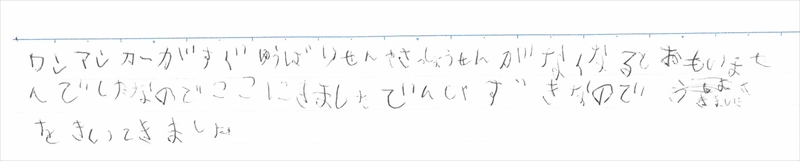 ワンマンカーがすぐゆうばりせんやさっしょうせんがなくなるとおもいませ
んでしたなのでここにきましたでんしゃずきなので
をきいてきました